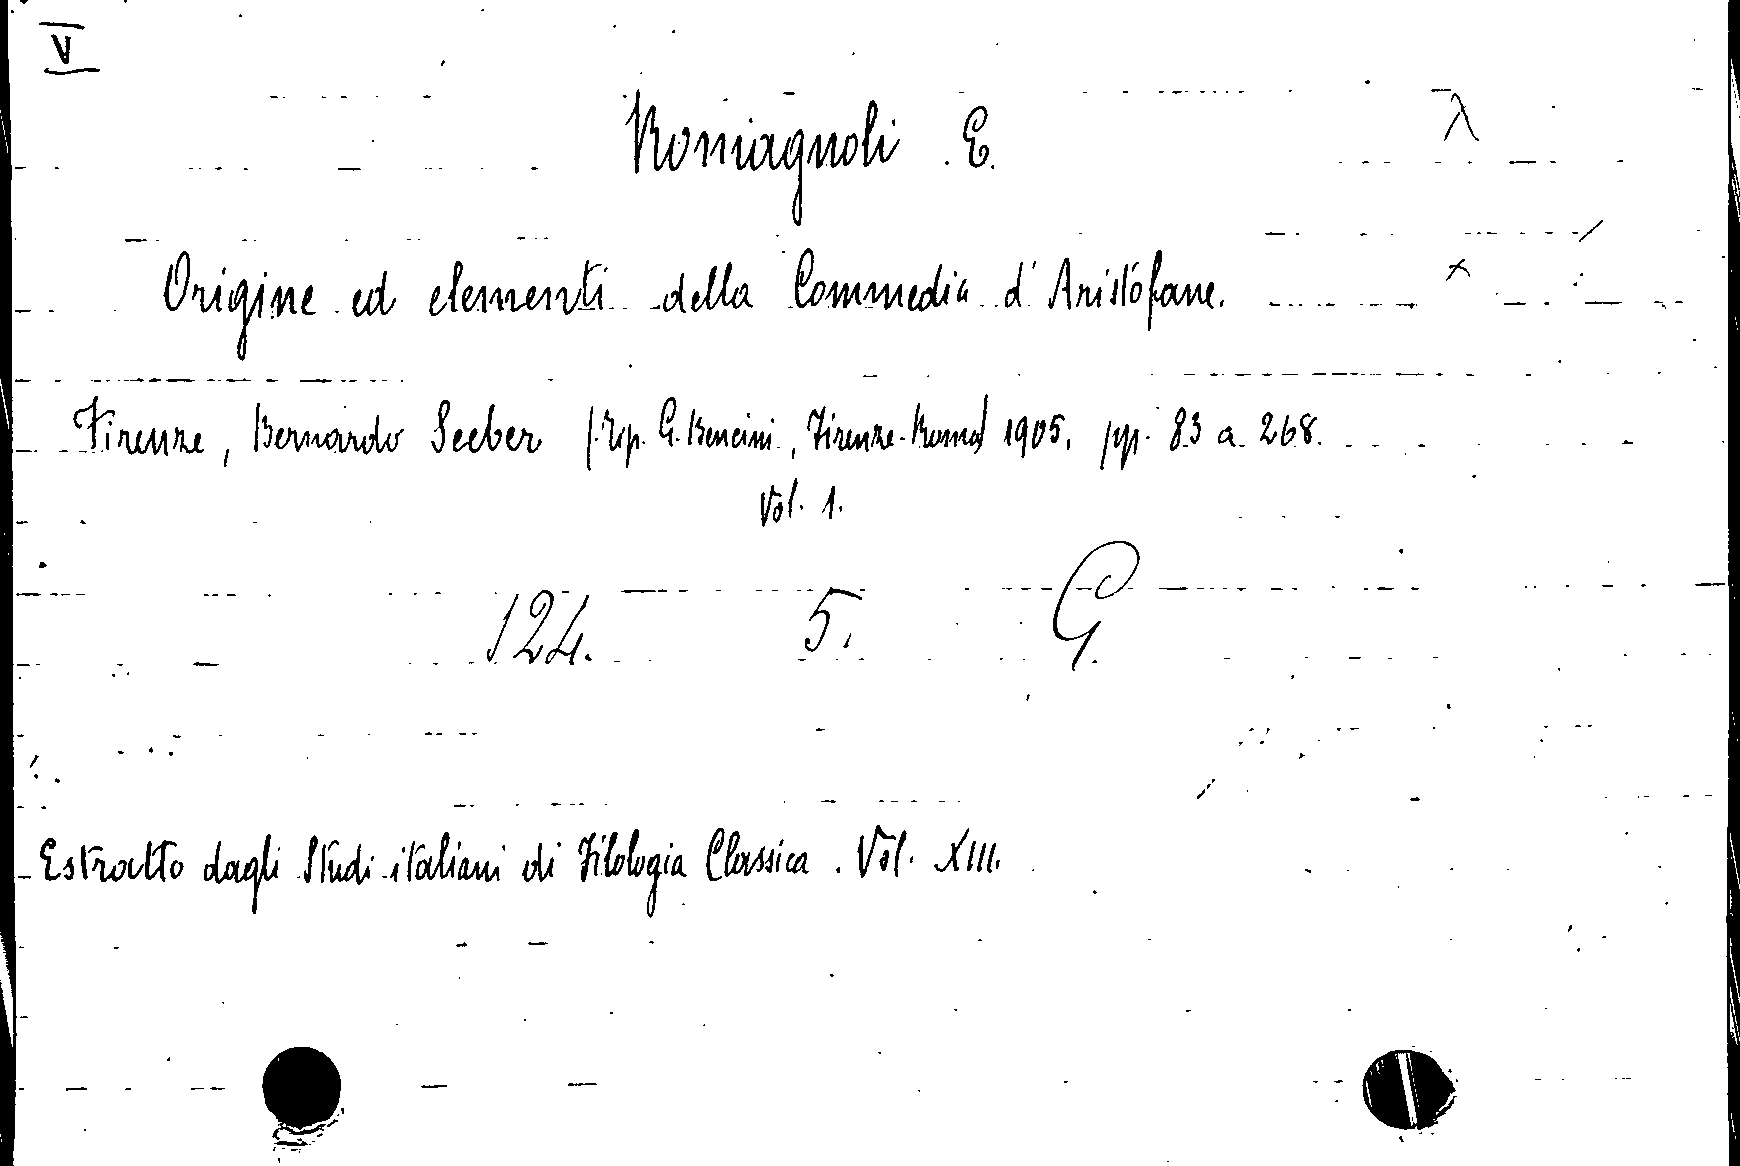 V
Romagnoli E.
Origine ed elementi della Commedia d'Aristofane.
Firenze, Bernardo Seeber (Tip. G. Bencini, Firenze-Roma) 1905. pp. 83 a 268.
Vol. 1.
124. 5. G.
Estratto dagli Studi italiani di Filologia Classica. Vol. XIII.